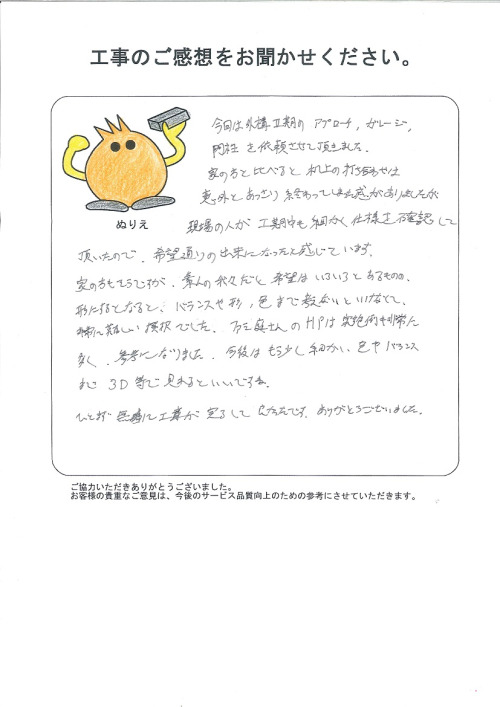 工事のご感想をお聞かせください。
今回は外構工期の アプローチ, ガレージ,
門柱 を依頼させて頂きました。
家の方と比べると 机上の打ち合わせは
意外と あっさり 終わってしまった感がありましたが
ぬりえ
現場の人が 工期中も 細かく 仕様を確認して
頂いたので、希望通りの出来になったと感じています。
家の方もそうですが、素人の我々だと 希望は いろいろと あるものの、
形にするとなると、バランスや形, 色まで 教ないといけなくて、
非常に難しい 選択でした。 さんのHPは 実施例も非常に
多く、参考になりました。今後は もう少し 細かい, 色や バランス
まで 3D等で 見れると いいですね。
ひとまず 無事に工事が 完了して 良かったです。ありがとうございました。
ご協力いただきありがとうございました。
お客様の貴重なご意見は、今後のサービス品質向上のための参考にさせていただきます。